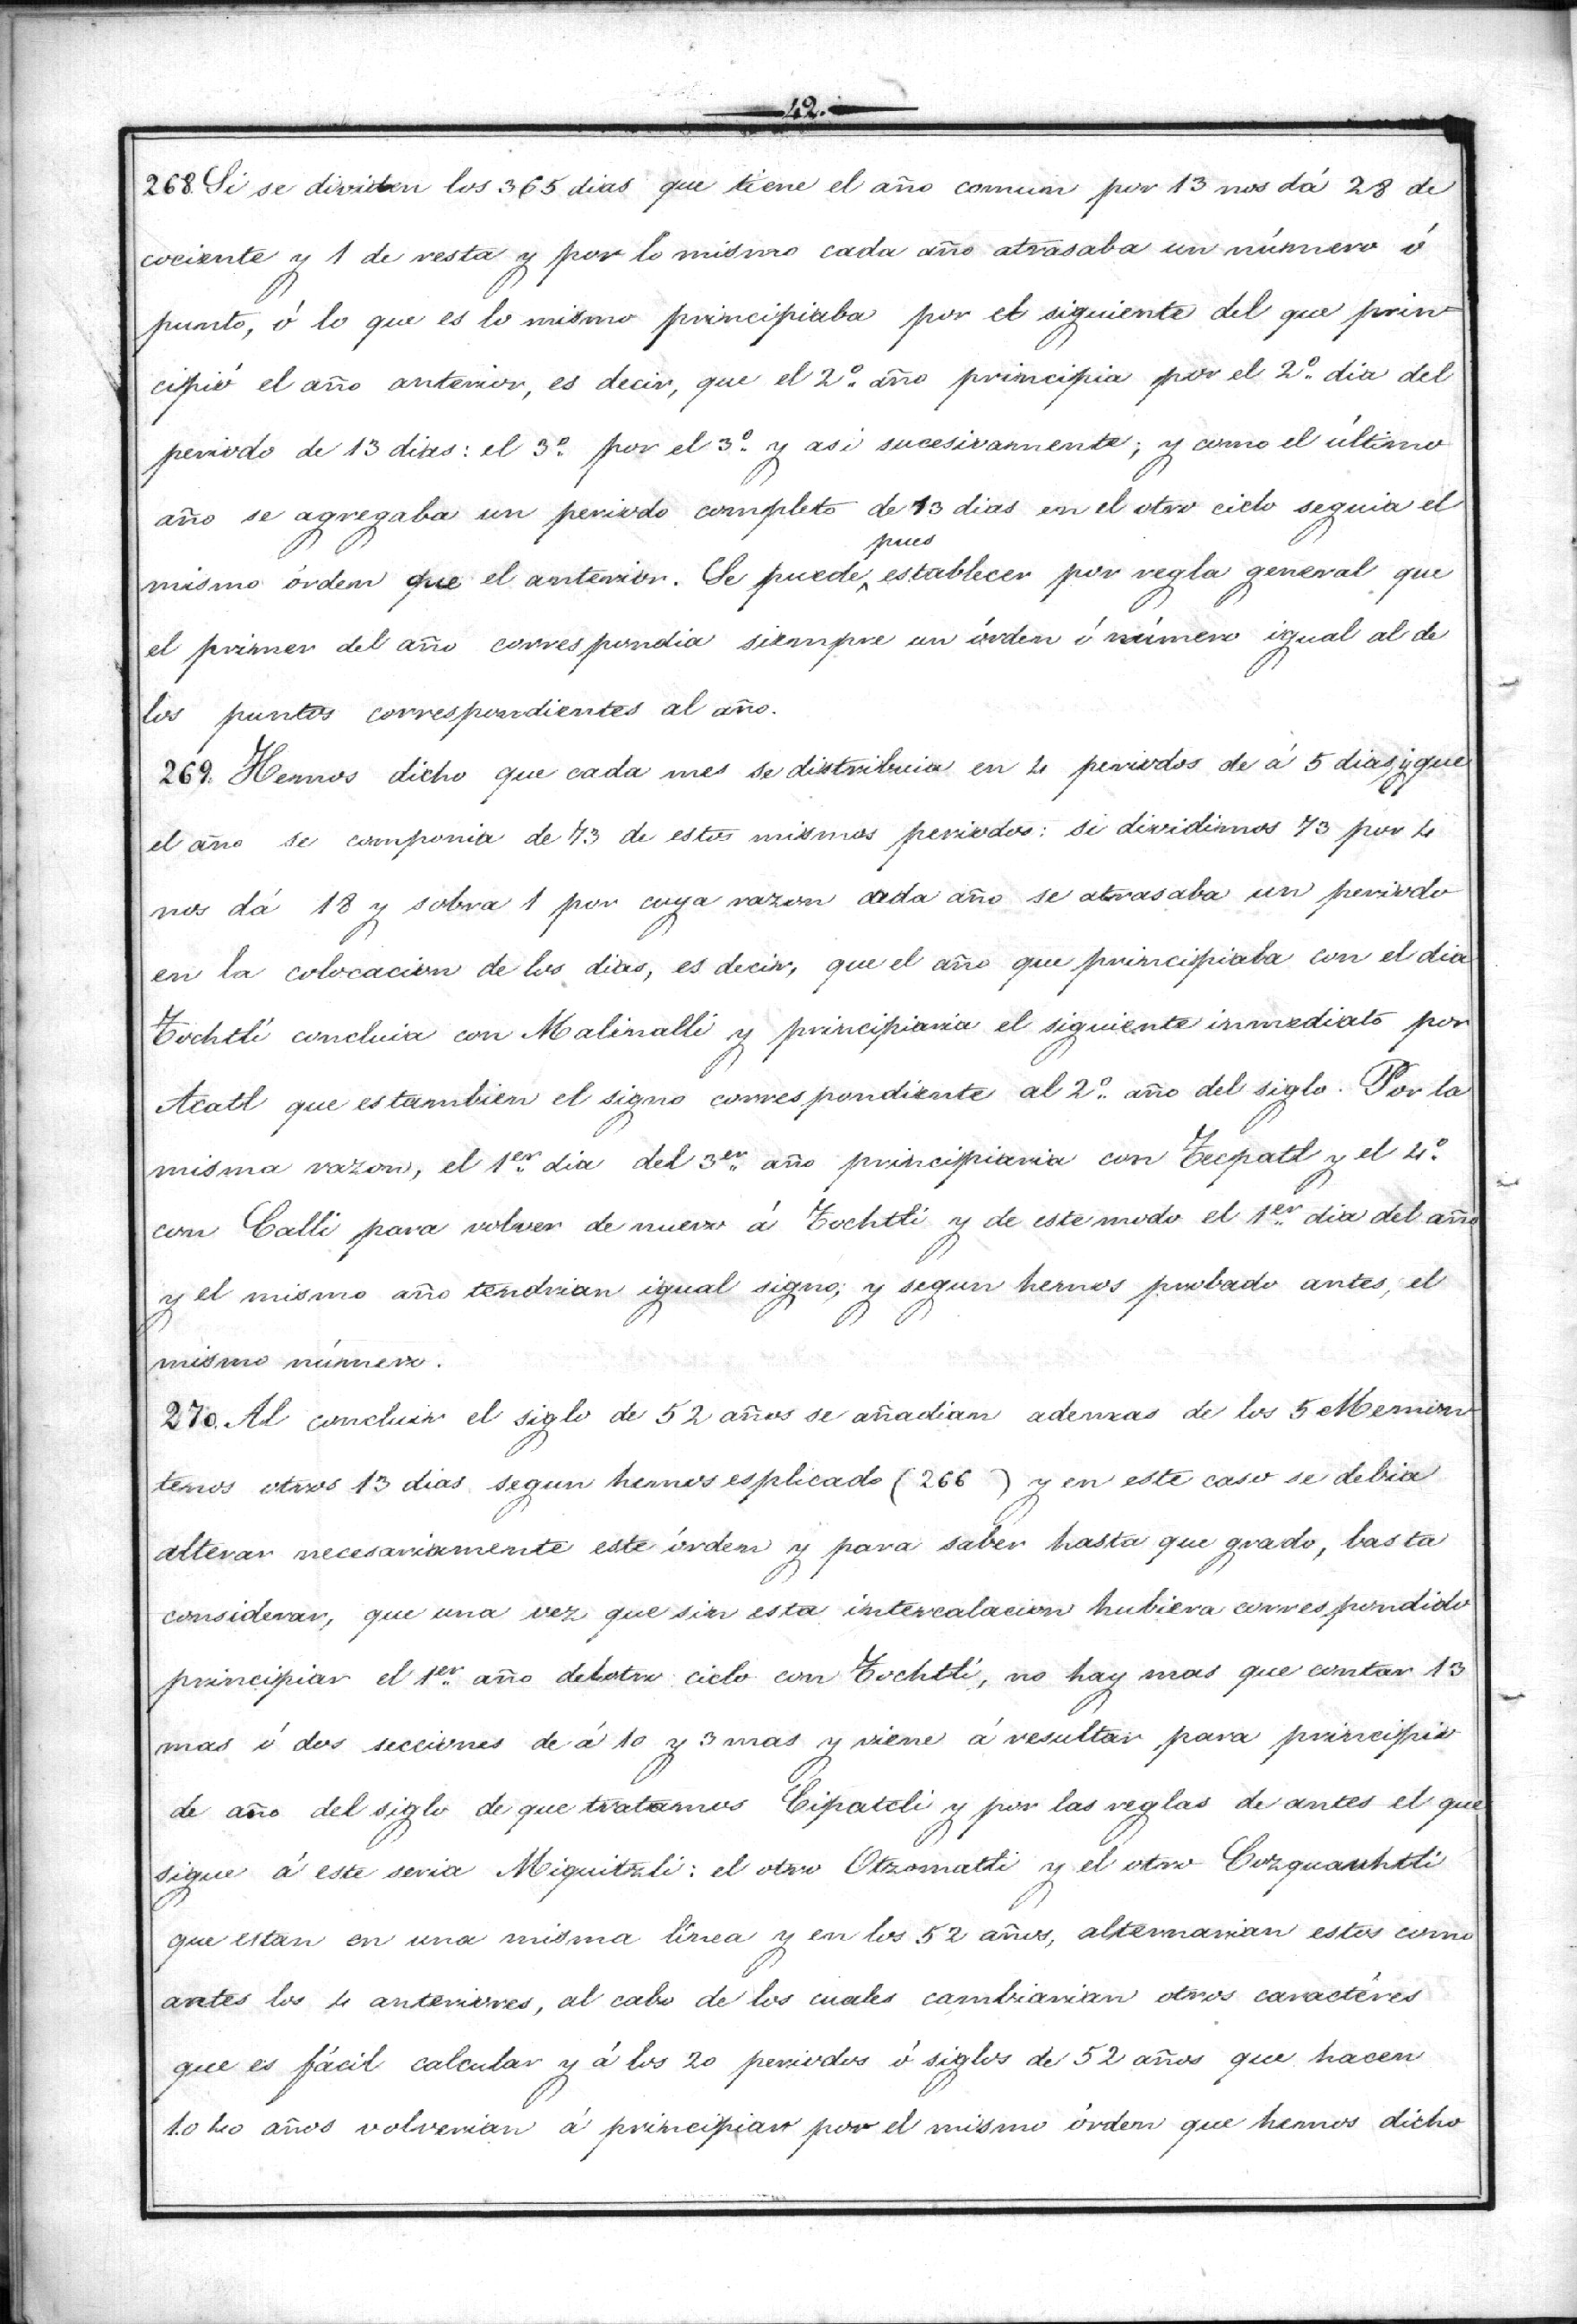 42.
268. Si se dividen los 365 dias que tiene el año comun por 13 nos dá 28 de
cociente y 1 de resta y por lo mismo cada año atrasaba un número ó
punto, ó lo que es lo mismo principiaba por el siguiente del que prin
cipió el año anterior, es decir, que el 2º año principia por el 2º dia del
periodo de 13 dias: el 3º por el 3º y asi sucesivamente; y como el último
año se agregaba un periodo completo de 13 dias en el otro ciclo seguia el
mismo órden que el anterior. Se puede pues establecer por regla general que
el primer del año correspondia siempre un órden ó número igual al de
los puntos correspondientes al año.
269. Hemos dicho que cada mes se distribuia en 4 periodos de á 5 dias y que
el año se componia de 73 de estos mismos periodos: si dividimos 73 por 4
nos dá 18 y sobra 1 por cuya razon cada año se atrasaba un periodo
en la colocacion de los dias, es decir, que el año que principiaba con el dia
Tochtli concluia con Malinalli y principiaria el siguiente inmediato por
Acatl que es tambien el signo correspondiente al 2º año del siglo. Por la
misma razon, el 1er dia del 3er año principiaria con Tecpatl y el 4º
con Calli para volver de nuevo á Tochtli y de este modo el 1er dia del año
y el mismo año tendrian igual signo; y segun hemos probado antes, el
mismo número.
270. Al concluir el siglo de 52 años se añadian ademas de los 5 Memon
temos otros 13 dias segun hemos esplicado (266 ) y en este caso se debia
alterar necesariamente este órden y para saber hasta que grado, basta
considerar, que una vez que sin esta intercalacion hubiera correspondido
principiar el 1er año del otro ciclo con Tochtli, no hay mas que contar 13
mas ó dos secciones de á 10 y 3 mas y viene á resultar para principio
de año del siglo de que tratamos Cipatcli y por las reglas de antes el que
sigue á este seria Miquitzli: el otro Otzomatli y el otro Cozquauhtli
que estan en una misma línea y en los 52 años, alternarian estos como
antes los 4 anteriores, al cabo de los cuales cambiarian otros caractéres
que es fácil calcular y á los 20 periodos ó siglos de 52 años que hacen
1.040 años volverian á principiar por el mismo órden que hemos dicho